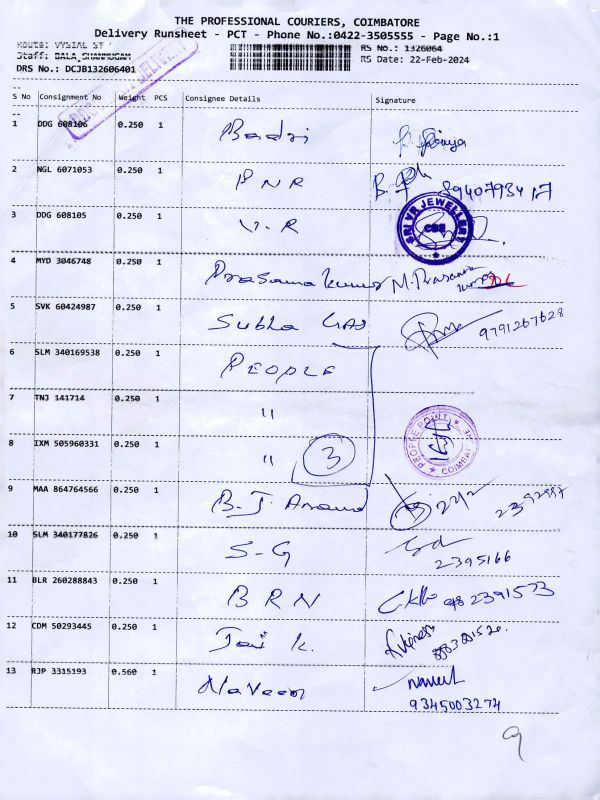 THE PROFESSIONAL COURIERS, COIMBATORE
Delivery Runsheet - PCT - Phone No.:0422-3505555 - Page No.:1
Route: VYSIAL ST
Staff: BALA SHANMUGAM
RS No.: 1326064
DRS No.: DCJB132606401
RS Date: 22-Feb-2024
S No Consignment No Weight PCS Consignee Details Signature
1 DDG 608106 0.250 1 Badri
2 NGL 6071053 0.250 1 P N R 8940793417
3 DDG 608105 0.250 1 V-R SRI VR JEWELLERY CBE
4 MYD 3046748 0.250 1 Prasanakumar M. Prasanna
5 SVK 60424987 0.250 1 Subha Gas 9791267628
6 SLM 340169538 0.250 1 PEOPLE
7 TNJ 141714 0.250 1 "
8 IXM 505960331 0.250 1 " 3 PEOPLE POINT COIMBATORE
9 MAA 864764566 0.250 1 B. J. Anand
10 SLM 340177826 0.250 1 S-G 2395166
11 BLR 260288843 0.250 1 B R N 2391573
12 CDM 50293445 0.250 1 Jai K.
13 RJP 3315193 0.560 1 Naveen 9345003274
9